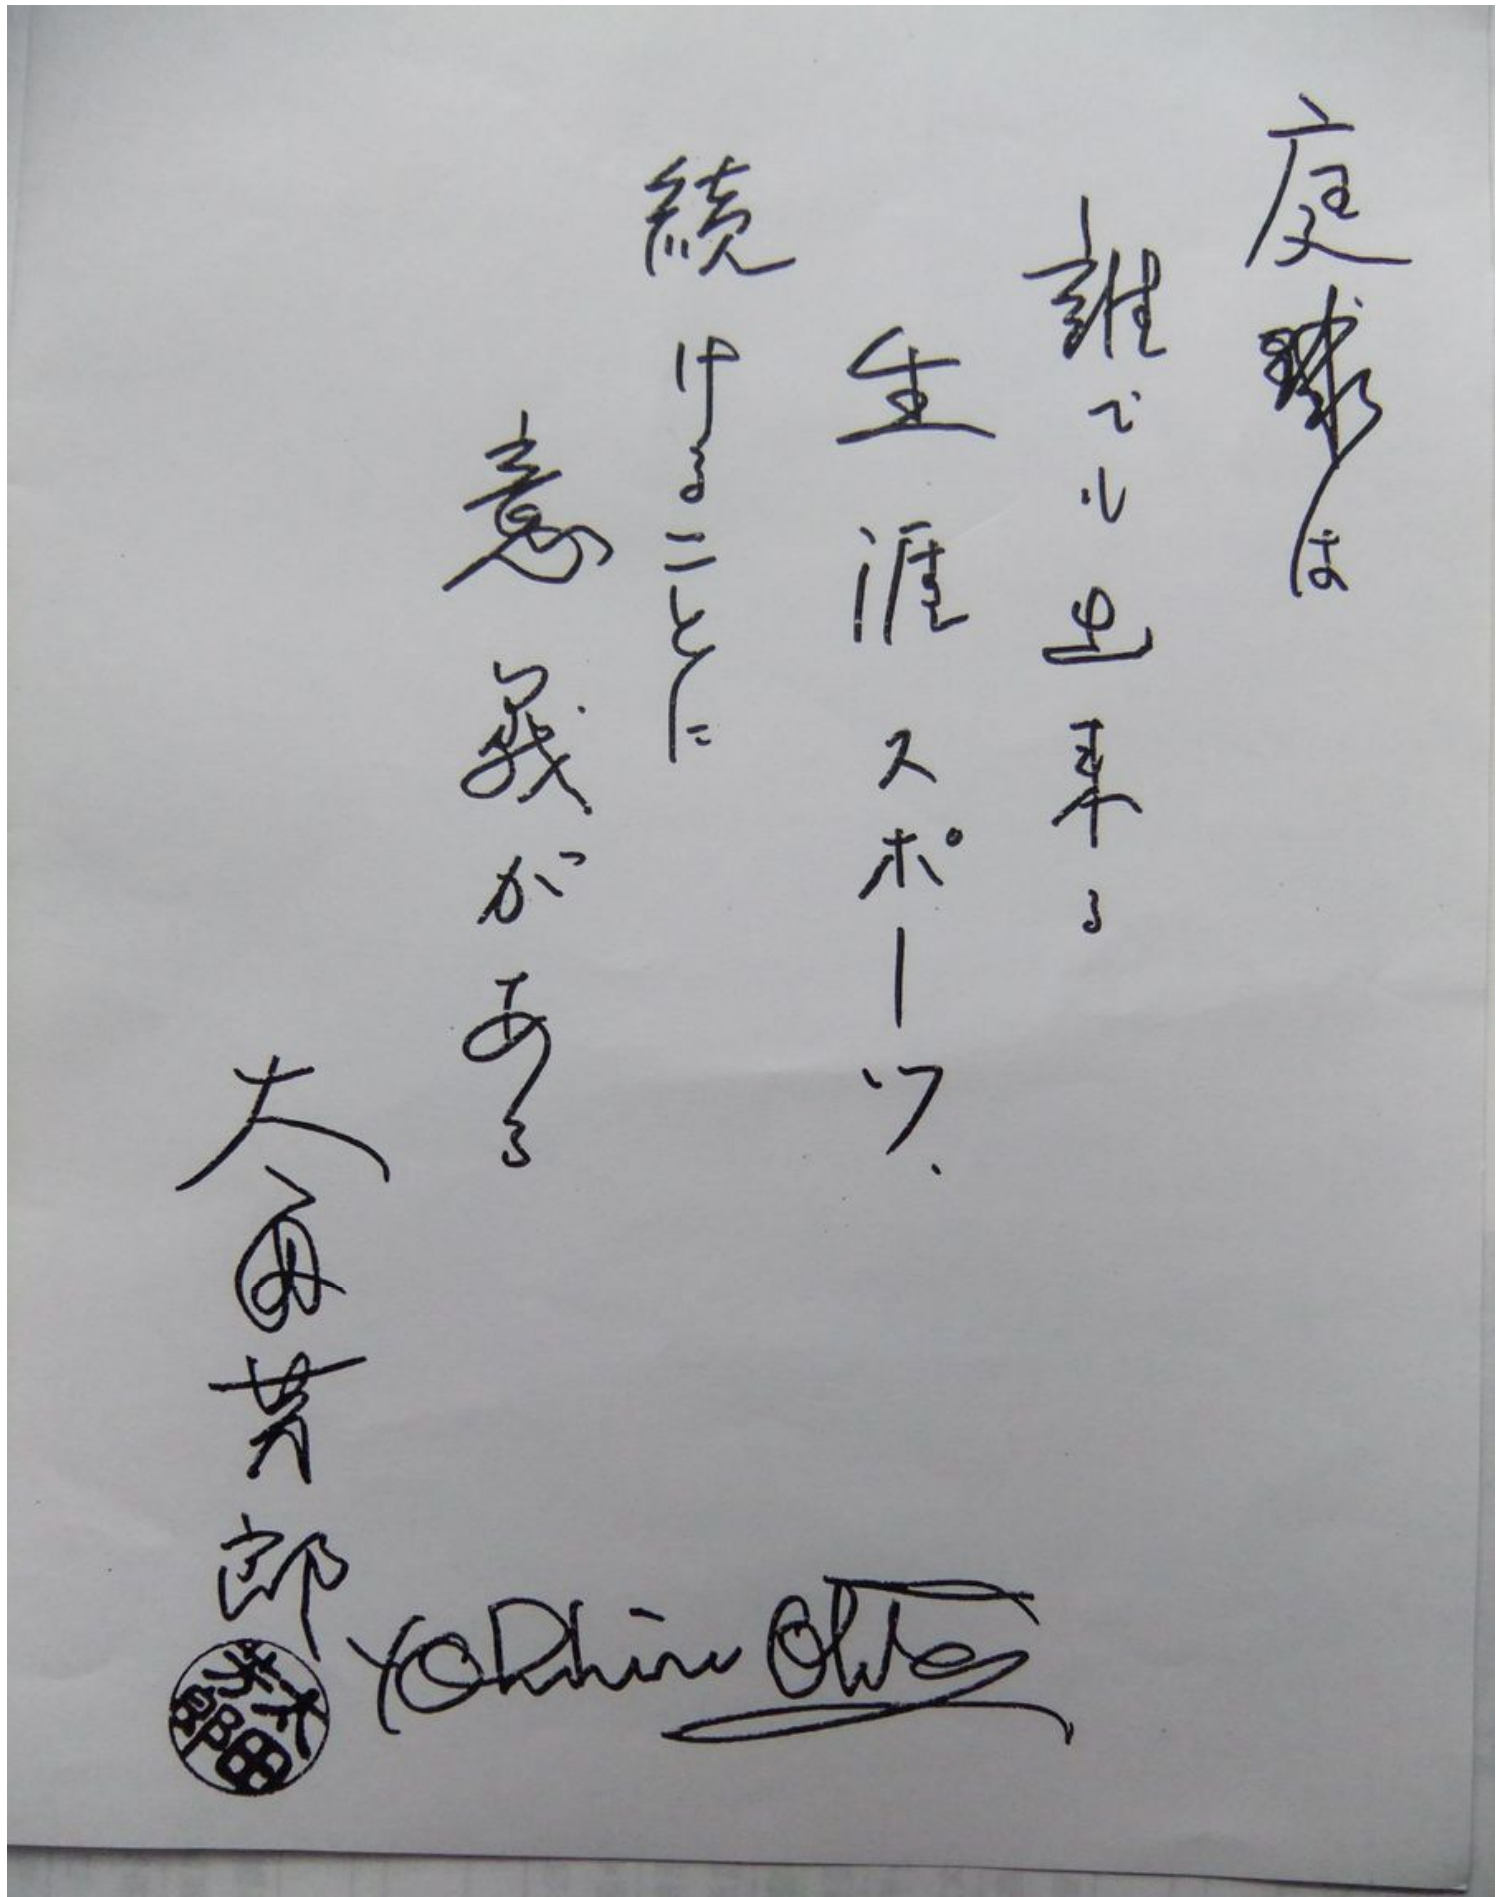 庭球は
誰でも出来る
生涯スポーツ、
続けることに
意義がある
大田芳郎
Yoshiro Ohta
大田芳郎